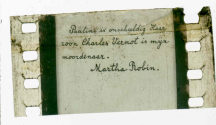 Pauline is onschuldig Haar
zoon Charles Vernot is mijn
moordenaar.
Martha Robin.